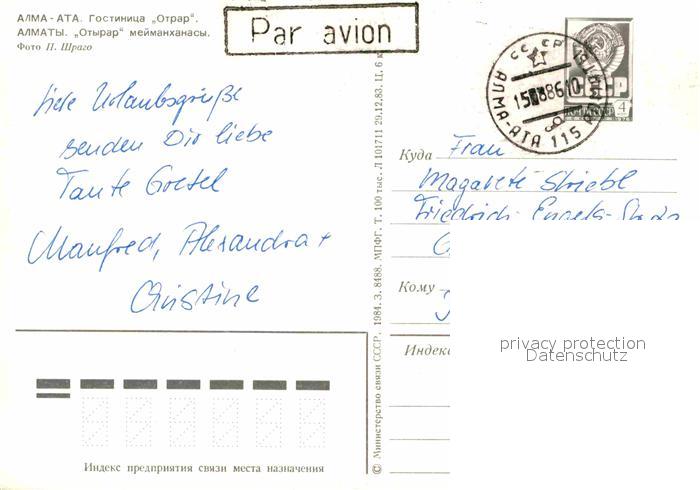 АЛМА-АТА. Гостиница „Отрар".
АЛМАТЫ. „Отырар" мейманханасы.
Фото П. Шраго
Par avion
СССР
АЛМА-АТА 115
ПОЧТА
4
liebe Urlaubsgrüße
senden Dir liebe
Tante Gretel
Manfred, Alexandra +
Christine
Куда
Frau
Magarete Striebl
Friedrich-Engels-Str.
Кому
Индекс
privacy protection
Datenschutz
Индекс предприятия связи места назначения
© Министерство связи СССР. 1984. З. 8488. МПФГ. Т. 100 тыс. Л 101711 29.12.83. Ц. 6 к